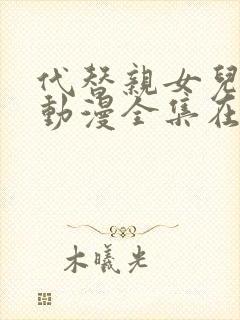 代替親女兒
動漫全集在
木曦光